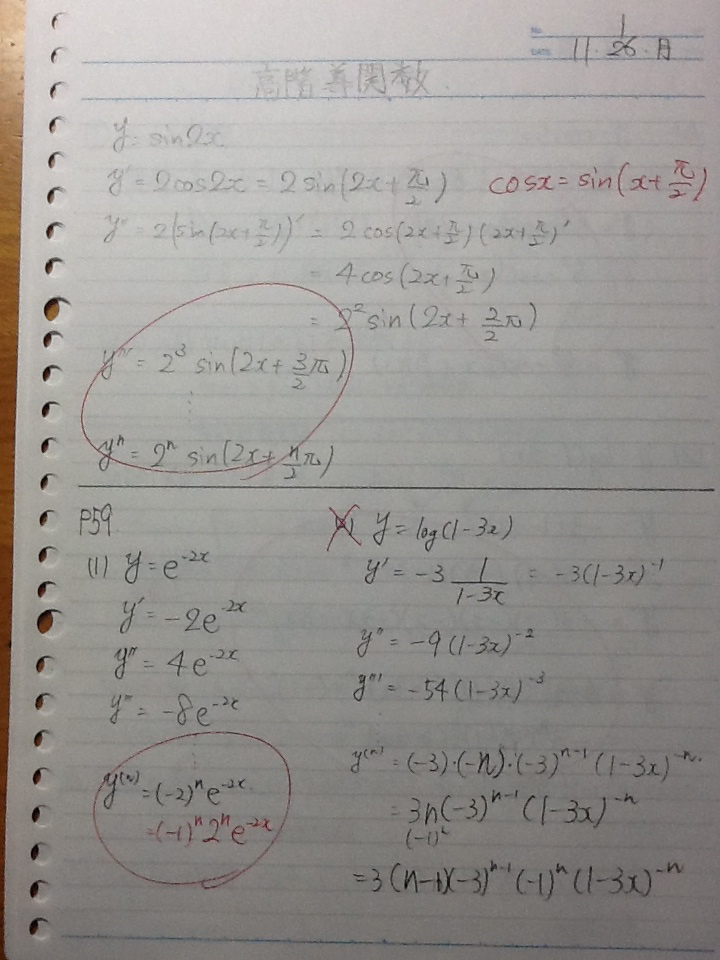 No. 1
DATE 11・26・月
高階導関数
y = sin2x
y' = 2cos2x = 2sin(2x+π/2) cosx = sin(x+π/2)
y'' = 2(sin(2x+π/2))' = 2cos(2x+π/2)(2x+π/2)'
= 4cos(2x+π/2)
= 2²sin(2x+2/2π)
y''' = 2³ sin(2x+3/2π)
⋮
yⁿ = 2ⁿ sin(2x+n/2π)
P59
(1) y = e^{-2x}
y' = -2e^{-2x}
y'' = 4e^{-2x}
y''' = -8e^{-2x}
⋮
y^{(n)} = (-2)ⁿe^{-2x}
= (-1)ⁿ2ⁿe^{-2x}
y = log(1-3x)
y' = -3 1/(1-3x) = -3(1-3x)^{-1}
y'' = -9(1-3x)^{-2}
y''' = -54(1-3x)^{-3}
y^{(n)} = (-3)・(-n)・(-3)^{n-1}(1-3x)^{-n}
= 3n(-3)^{n-1}(1-3x)^{-n}
(-1)²
= 3(n-1)(-3)^{n-1}(-1)ⁿ(1-3x)^{-n}